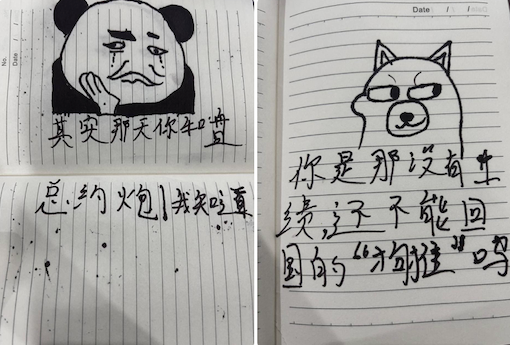 No.
Date
其实那天你和
总约炮,我知道
Date
你是那没有业
绩还不能回
国的“狗推”吗